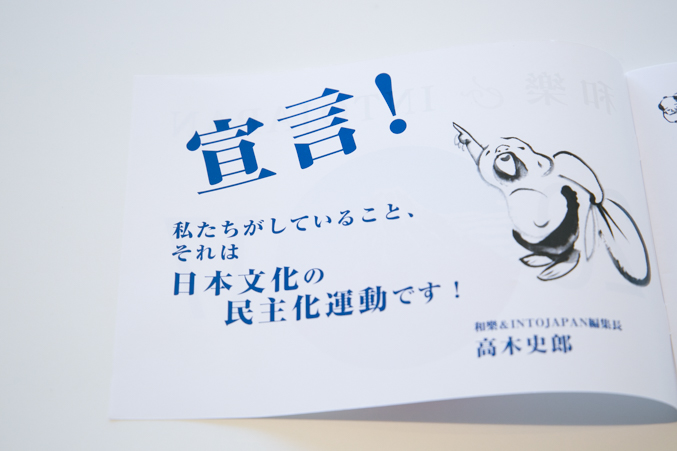 宣言!
私たちがしていること、
それは
日本文化の
民主化運動です!
和樂&INTOJAPAN編集長
高木史郎